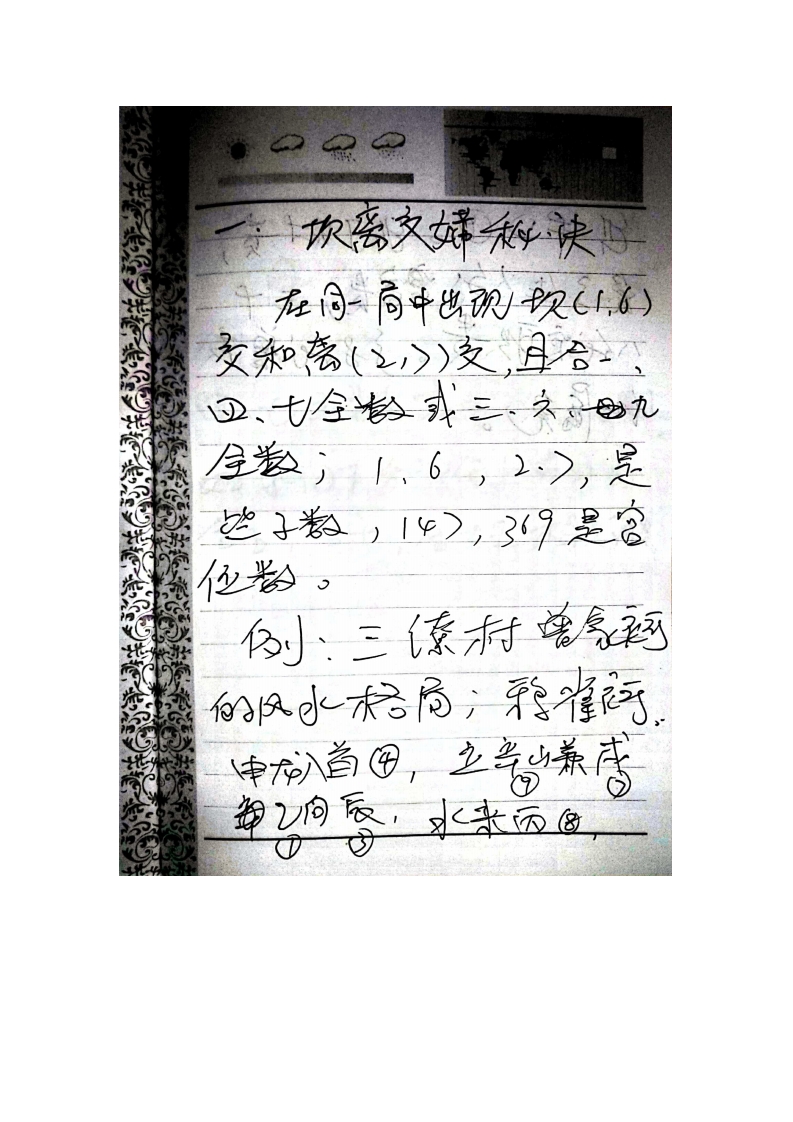 一. 坎离交媾秘诀
在同一局中出现坎(1.6)
交和离(2,7)交,且合一、
四、七全数或三、六、九
全数; 1. 6 , 2.7, 是
些子数, 147, 369 是客
位数。
例: 三僚村曾家祠
的风水格局; 鸦雀祠..
申龙入首④, 立辛山兼戌
⑨ ⑦
乙向辰, 水来丙⑧,
① ③